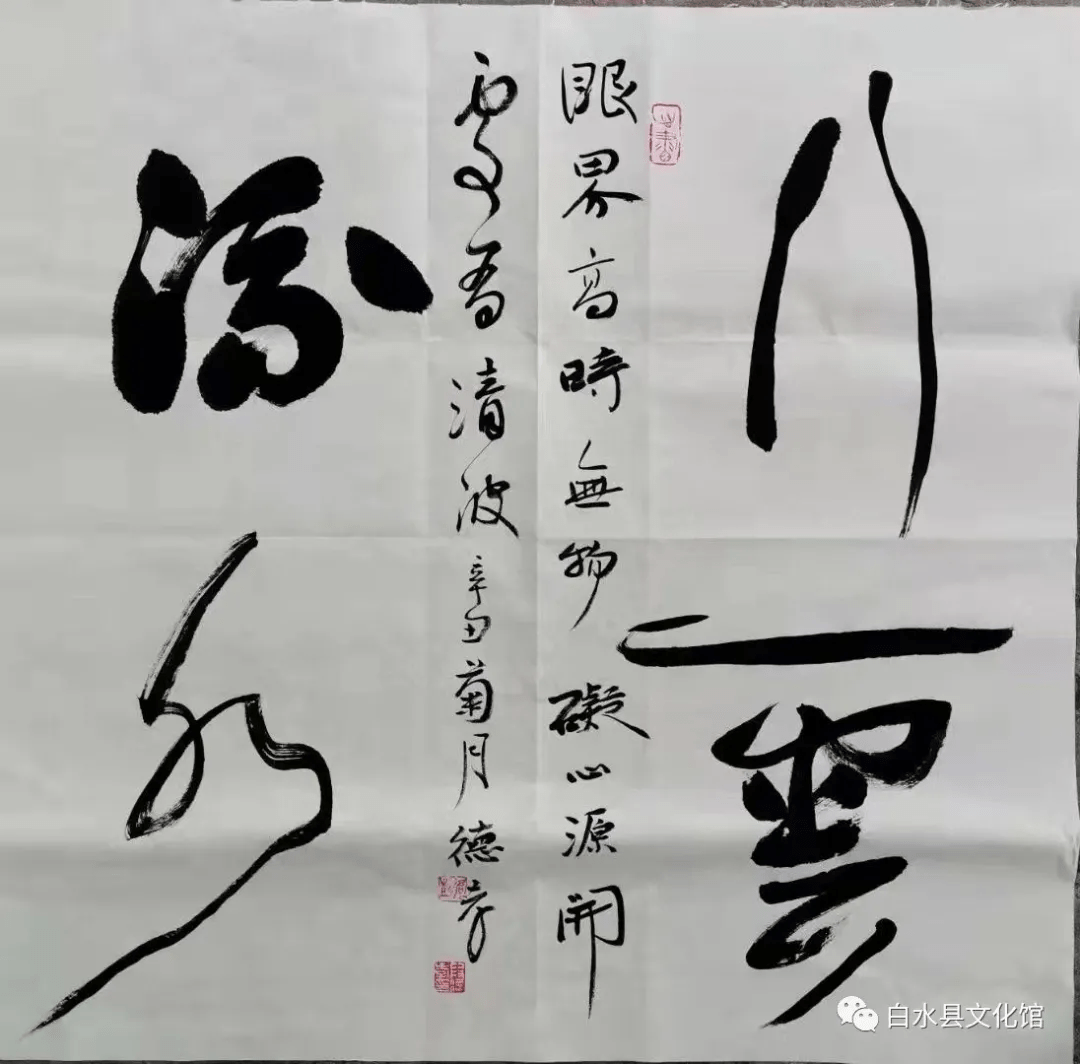 行雲
流水
眼界高時無物礙心源開
處有清波辛丑菊月德孝
白水县文化馆